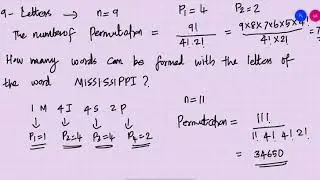 9- Letters → n=9 P₁=4 P₂=2
The number of Permutation = 9! / 4! 2! = 9×8×7×6×5×4! / 4! × 2! =
How many words can be formed with the letters of
the word MISSISSIPPI ?
1 M 4 I 4 S 2 P n = 11
↓ ↓ ↓ ↓
P₁=1 P₂=4 P₃=4 P₄=2
Permutation = 11! / 1! 4! 4! 2!
= 34650